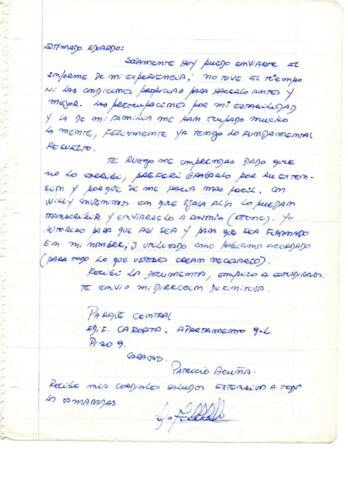 Estimado Eduardo:
Solamente hoy puedo enviarte el
informe de mi experiencia; no tuve el tiempo
ni las condiciones para hacerlo antes y
mejor. Las preocupaciones por mi estabilidad
y la de mi familia me han ocupado mucho
la mente, felizmente ya tengo lo fundamental
resuelto.
Te ruego me comprendas dado que
no lo escribí, preferí grabarlo por su exten-
sión y porque se me hacía más fácil. Con
Willy enviamos en que ojala alla lo puedan
transcribir y enviarselo a Antonio. Yo
autorizo para que así sea y para que sea firmado
en mi nombre, y utilizado como habíamos acordado
(para todo lo que ustedes crean necesario).
Recibí los documentos, empiezo a estudiarlos.
Te envio mi dirección definitiva.
Parque Central
Edif. Caroata. Apartamento 9-L
Piso 9.
Caracas.
Patricio Acuña.
Recibe mis cordiales saludos extensivo a todos
los camaradas